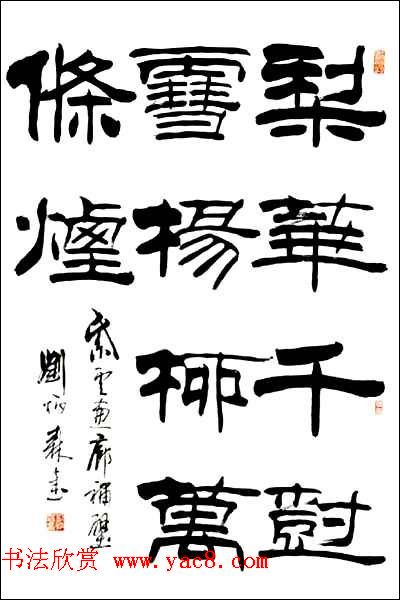 梨華千尌
雪楊柳萬
條煙
紫雲画廊補壁
劉炳森書
书法欣赏 www.yac8.com